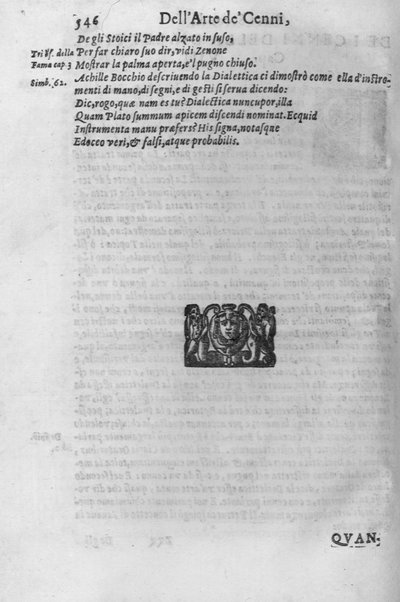 546 Dell'Arte de' Cenni,
De gli Stoici il Padre alzato in suso,
Trióf. della Per far chiaro suo dir, vidi Zenone
Fama cap 3 Mostrar la palma aperta, e'l pugno chiuso.
Simb. 62. Achille Bocchio descriuendo la Dialettica ci dimostrò come ella d'instro-
menti di mano, di segni, e di gesti si serua dicendo:
Dic, rogo, quæ nam es tu? Dialectica nuncupor, illa
Quam Plato summum apicem discendi nominat. Ecquid
Instrumenta manu præfers? His signa, notasque
Edoceo veri, & falsi, atque probabilis.
QVAN-